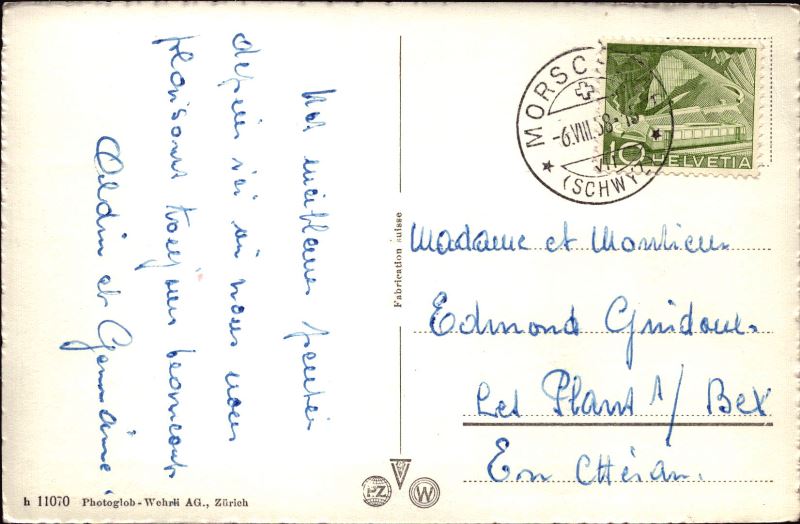 Nos meilleures pensées
depuis ici où nous nous
plaisons toujours beaucoup
et Germaine.
MORSC
-6.VIII.58-15
(SCHWYZ)
10 HELVETIA
Madame et Monsieur
Edmond Guidoux
Les Plans s/ Bex
En Chéran.
Fabrication suisse
h 11070 Photoglob-Wehrli AG., Zürich
PZ
W